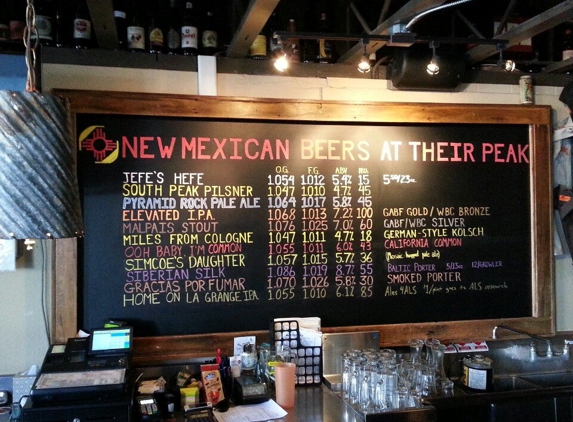 NEW MEXICAN BEERS AT THEIR PEAK
O.G. F.G. ABV IBU
JEFE'S HEFE 1.054 1.012 5.4% 15
SOUTH PEAK PILSNER 1.047 1.010 4.7% 45
PYRAMID ROCK PALE ALE 1.064 1.017 5.8% 45
ELEVATED I.P.A. 1.068 1.013 7.2% 100 GABF GOLD/WBC BRONZE
MALPAIS STOUT 1.076 1.025 7.0% 60 GABF/WBC SILVER
MILES FROM COLOGNE 1.047 1.011 4.7% 18 GERMAN-STYLE KÖLSCH
OOH BABY I'M COMMON 1.055 1.011 6.0% 43 CALIFORNIA COMMON
SIMCOE'S DAUGHTER 1.057 1.015 5.7% 36 (Mosaic hopped pale ale)
SIBERIAN SILK 1.086 1.019 8.7% 55 BALTIC PORTER
GRACIAS POR FUMAR 1.070 1.026 5.8% 30 SMOKED PORTER
HOME ON LA GRANGE IPA 1.055 1.010 6.1% 85 Ales 4 ALS $1/pint goes to ALS research